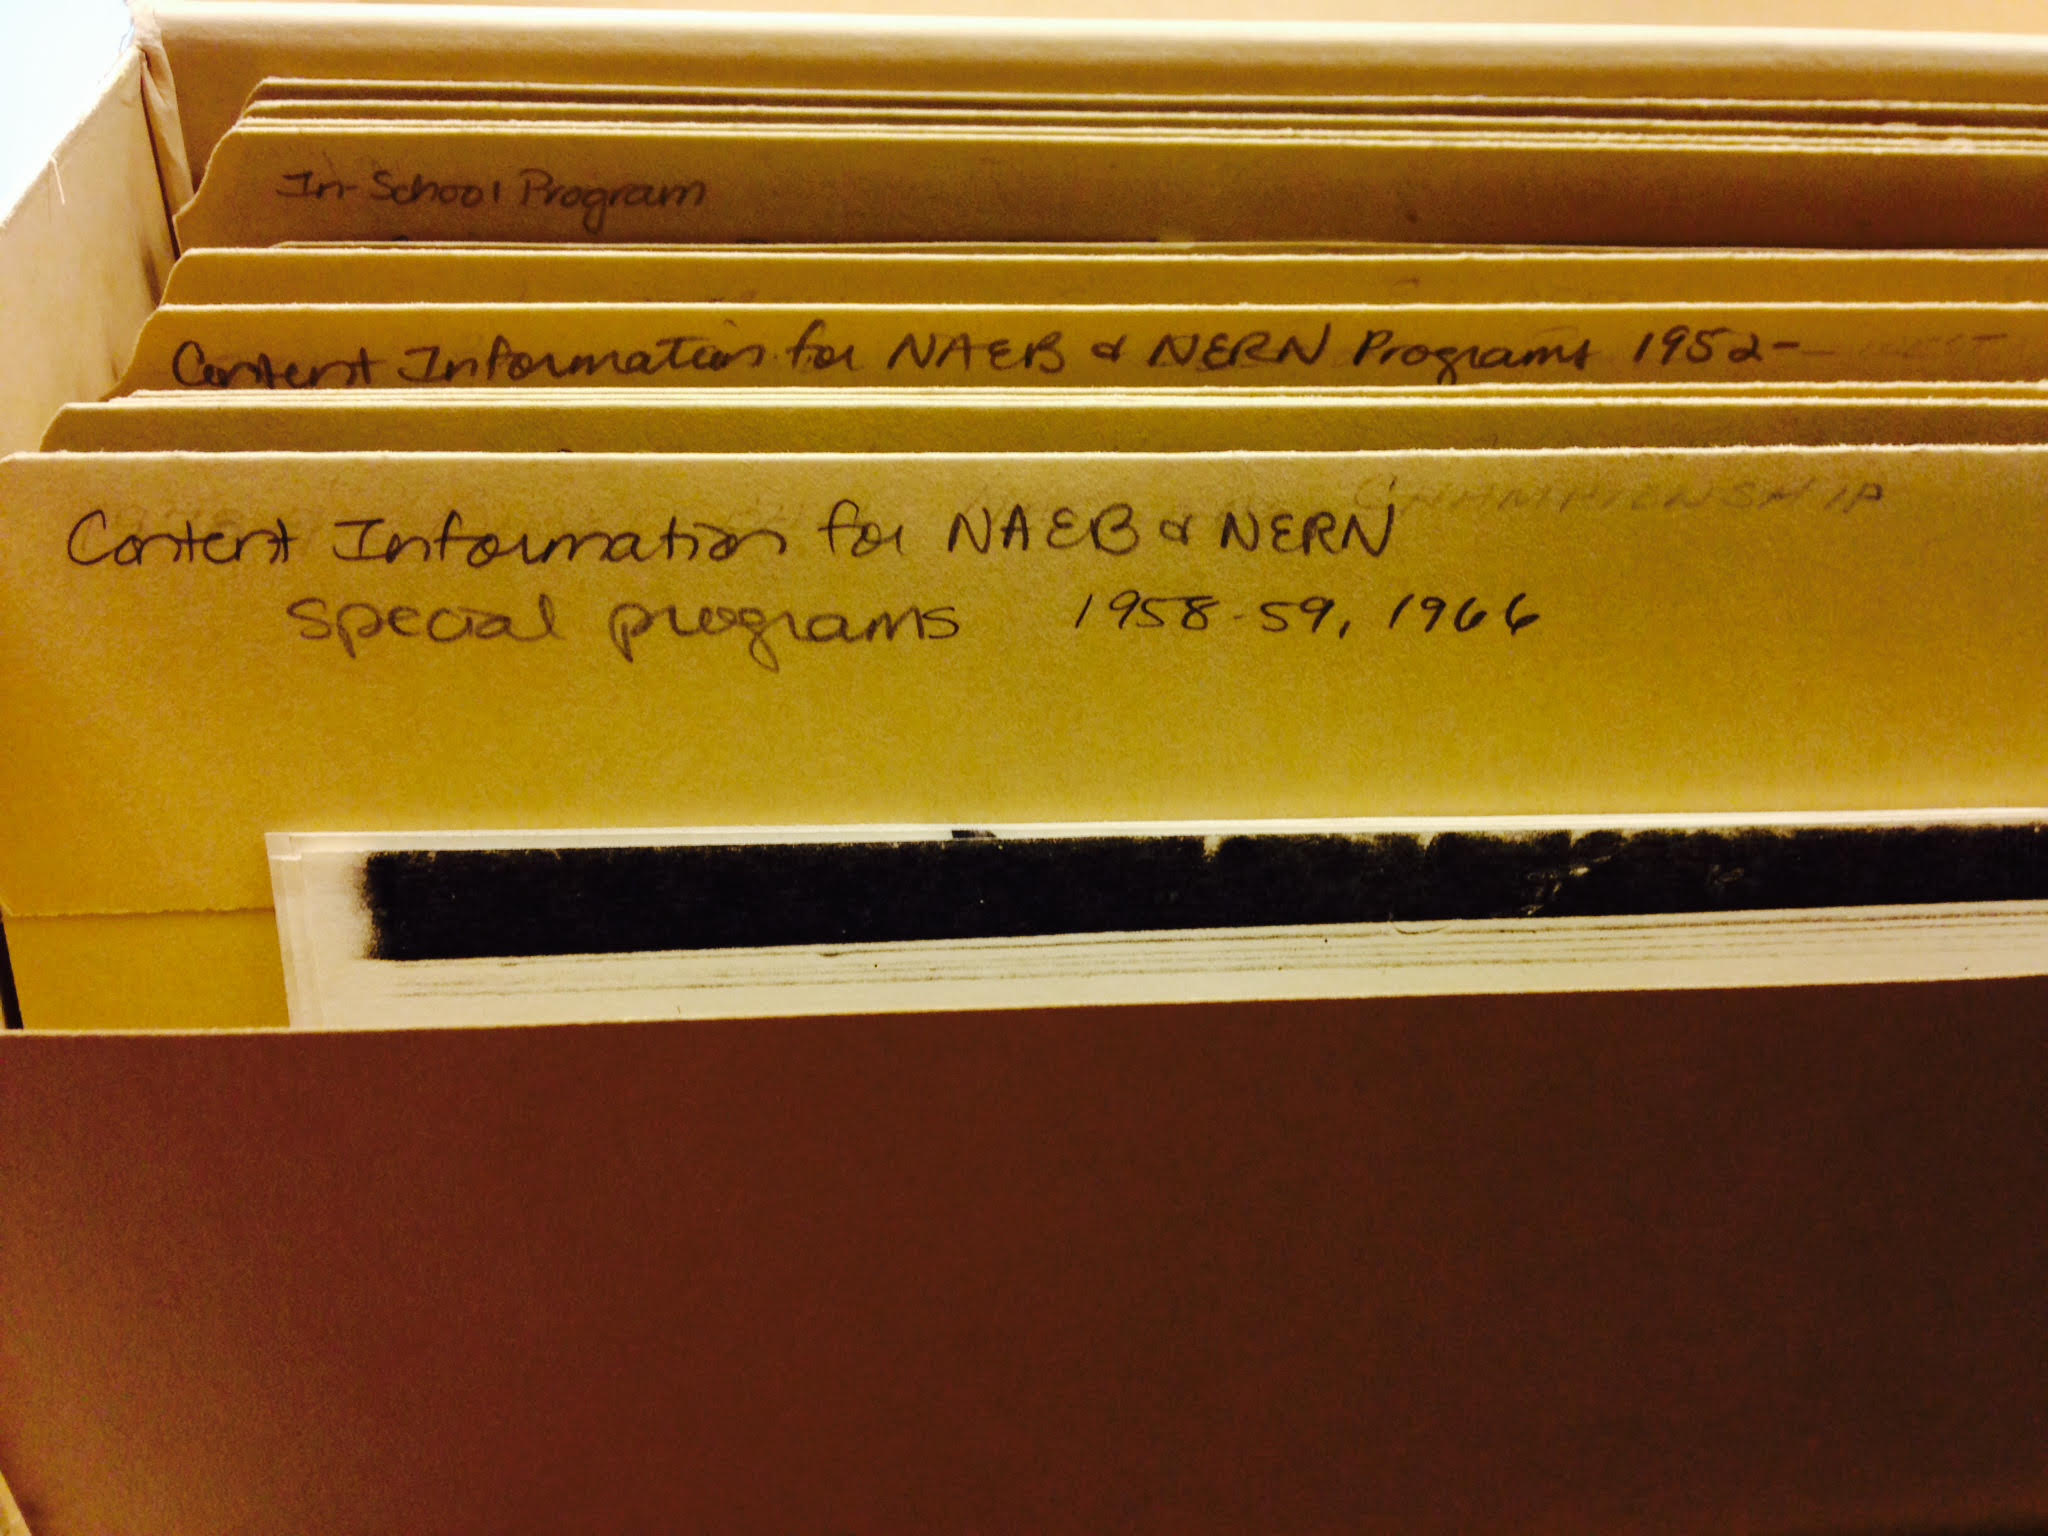 In-School Program
Content Information for NAEB & NERN Programs 1952-
CHAMPIONSHIP
Content Information for NAEB & NERN
special programs 1958-59, 1966